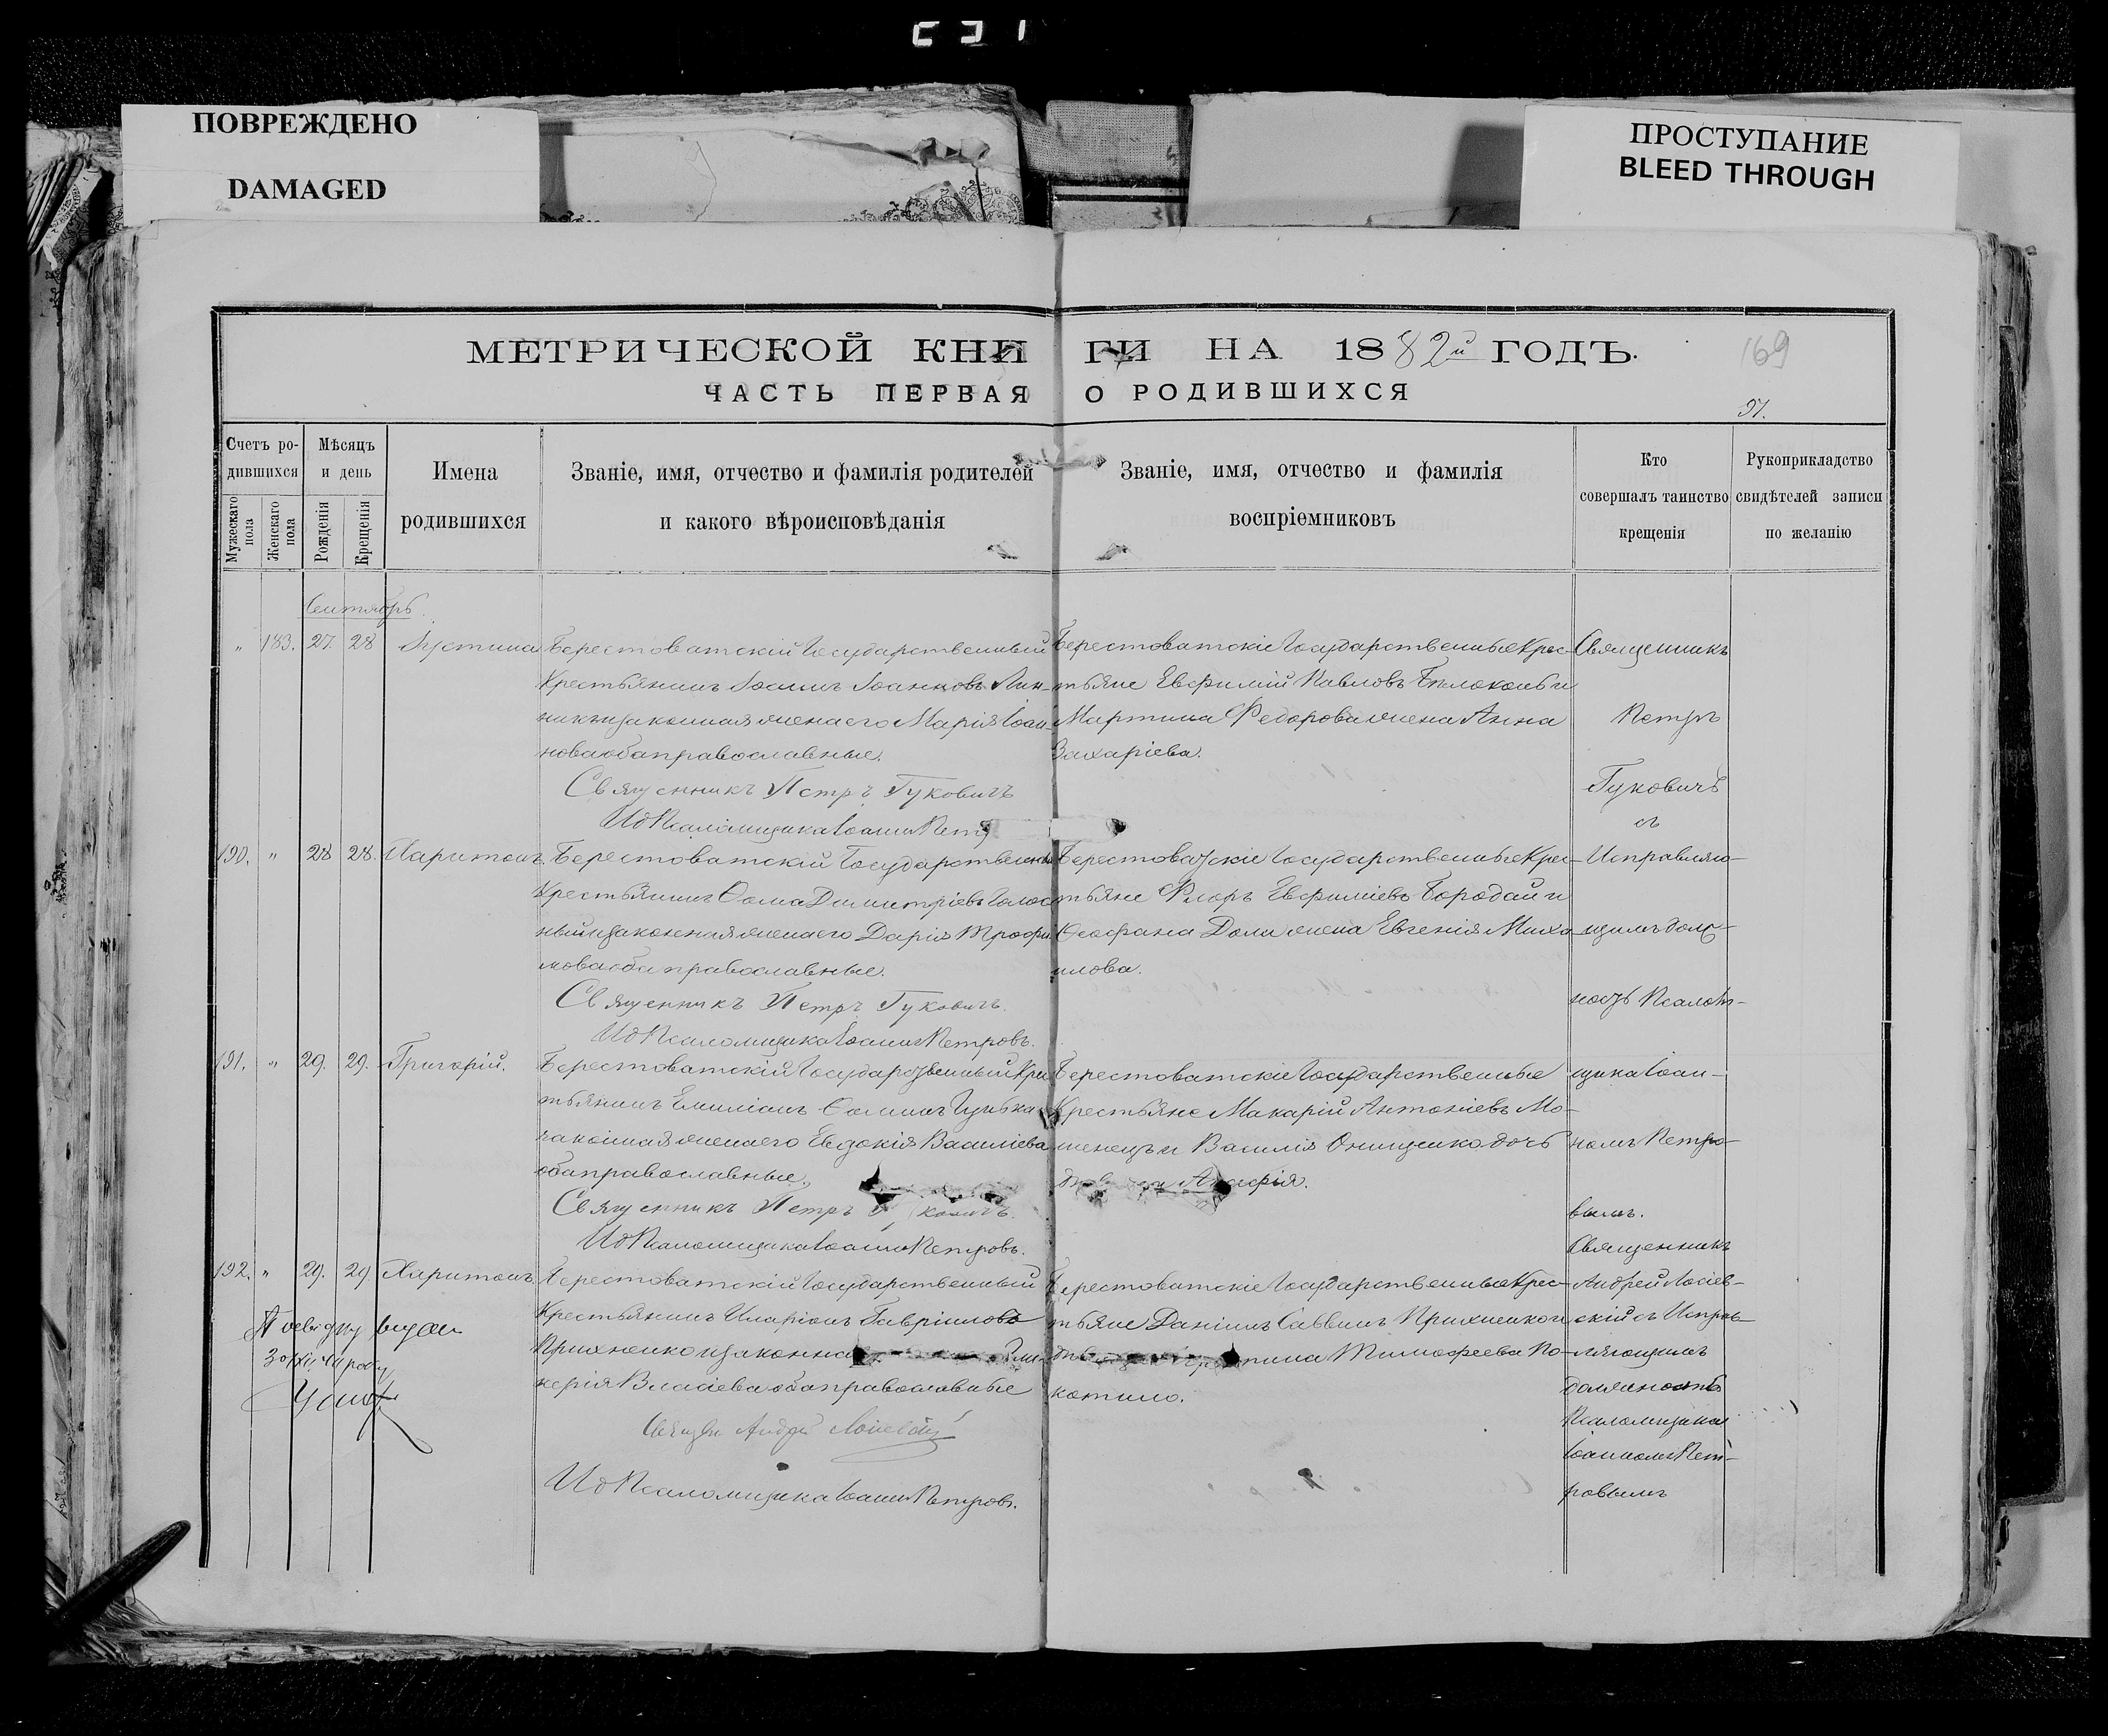 ПОВРЕЖДЕНО
DAMAGED
ПРОСТУПАНИЕ
BLEED THROUGH
МЕТРИЧЕСКОЙ КНИГИ НА 1882й ГОДЪ.
169
ЧАСТЬ ПЕРВАЯ О РОДИВШИХСЯ
97.
Счетъ ро-
дившихся
Мужескаго пола
Женскаго пола
Мѣсяцъ
и день
Рожденія
Крещенія
Имена
родившихся
Званіе, имя, отчество и фамилія родителей
и какого вѣроисповѣданія
Званіе, имя, отчество и фамилія
воспріемниковъ
Кто
совершалъ таинство
крещенія
Рукоприкладство
свидѣтелей записи
по желанію
Сентябрь.
" 183. 27. 28 Іустина
Берестоватскій Государственный
Крестьянинъ Іоаннъ Іоанновъ Лин-
никъ и законная жена его Марія Іоан-
нова оба православные.
Священникъ Петръ Гуковичъ
ИдПсаломщика Іоаннъ Петр
Берестоватскіе Государственные Крес-
тьяне Евфимій Павловъ Бѣлоконь и
Мартина Федорова жена Анна
Захаріева.
190. " 28 28. Харитонъ
Берестоватскій Государственный
Крестьянинъ Ѳома Димитріевъ Голос
ный и законная жена его Дарія Трофи
мова оба православные.
Священникъ Петръ Гуковичъ.
ИдПсаломщика Іоаннъ Петровъ.
Берестоватскіе Государственные Крес-
тьяне Флоръ Евфиміевъ Бородай и
Ѳеофана жена Евгенія Миха-
илова.
191. " 29. 29. Григорій.
Берестоватскій Государственный Крес
тьянинъ Емиліанъ Ѳоминъ Цыбка
законная жена его Евдокія Василіева
оба православные.
Священникъ Петръ Г ковичъ.
ИдПсаломщика Іоаннъ Петровъ.
Берестоватскіе Государственные
Крестьяне Макарій Антоніевъ Мо-
и Василія Онищенко дочь
192. " 29. 29 Харитонъ
Берестоватскій Государственный
Крестьянинъ Иларіонъ Гавріиловъ
Прихненко и законна
керія Власіева оба православные
Андрей
ИдПсаломщика Іоаннъ Петровъ.
Берестоватскіе Государственные Крес-
тьяне Даніилъ Саввинъ Прихненко и
Тимофеева По-
котило.
Священникъ
Петръ
Гуковичъ
съ
Исправляю-
щимъ долж-
ность Псалом-
щика Іоан-
номъ Петро-
вымъ.
Священникъ
Андрей
скій съ Исправ-
ляющимъ
должность
Псаломщика
Іоанномъ Пет-
ровымъ